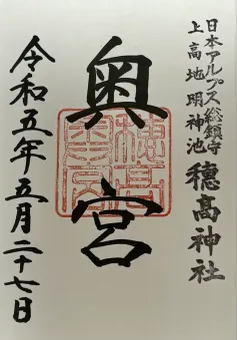 日本アルプス総鎮守
上高地明神池
穂高神社
奥宮
穂高
奥宮
令和五年五月二十七日